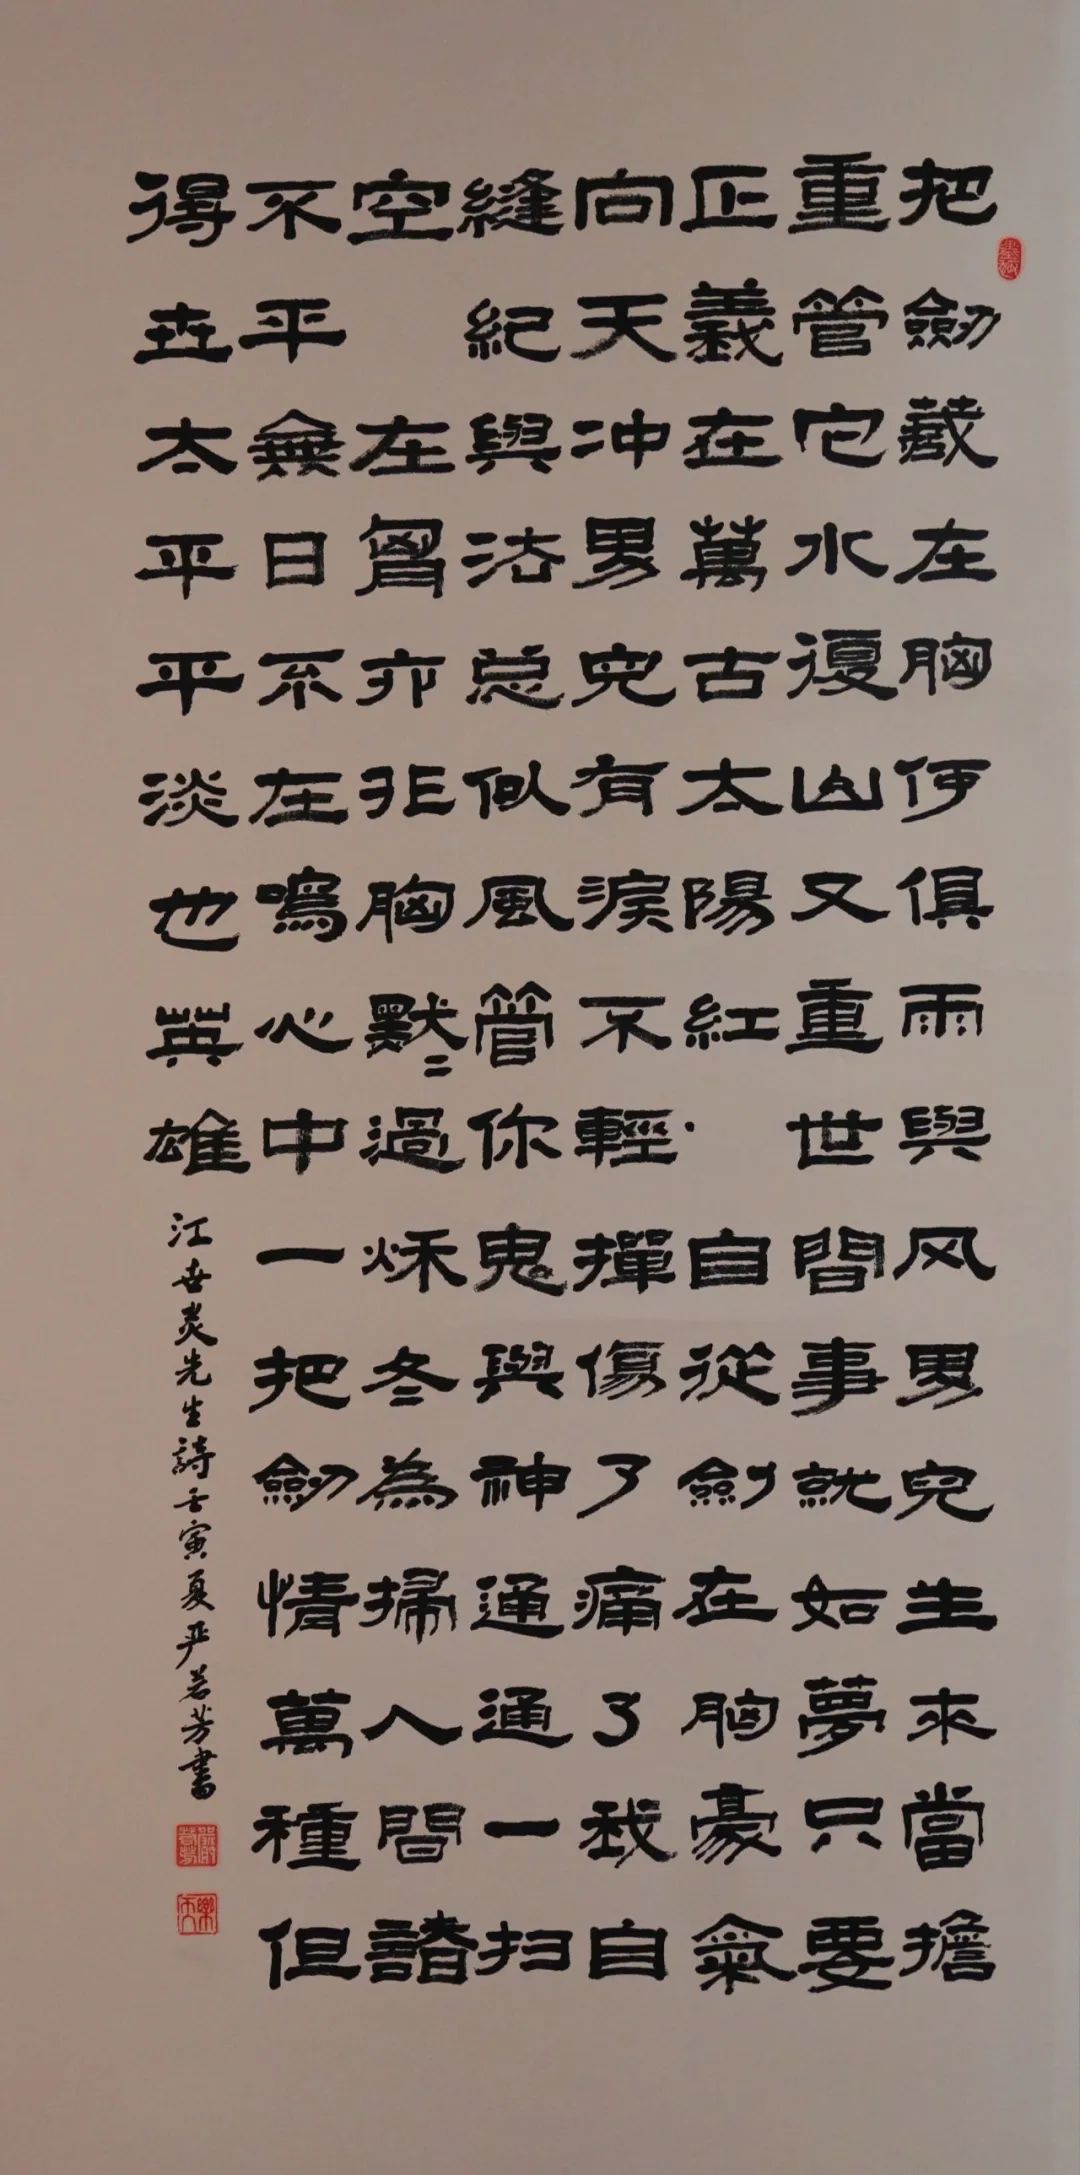 把劔藏在胸何俱雨與风男兒生來當擔
重管它水復山又重 世間事就如夢只要
正義在萬古太陽紅· 自從劍在胸豪氣
向天冲男兒有淚不輕撣傷了痛了我自
縫紀與沽总似風管你鬼與神通通一扫
空 在胷亦非胸默〻過秌冬為掃人間諸
不平無日不在鳴心中一把劔情萬種但
得世太平平淡也英雄
江世炎先生詩壬寅夏严若芳書
樂天